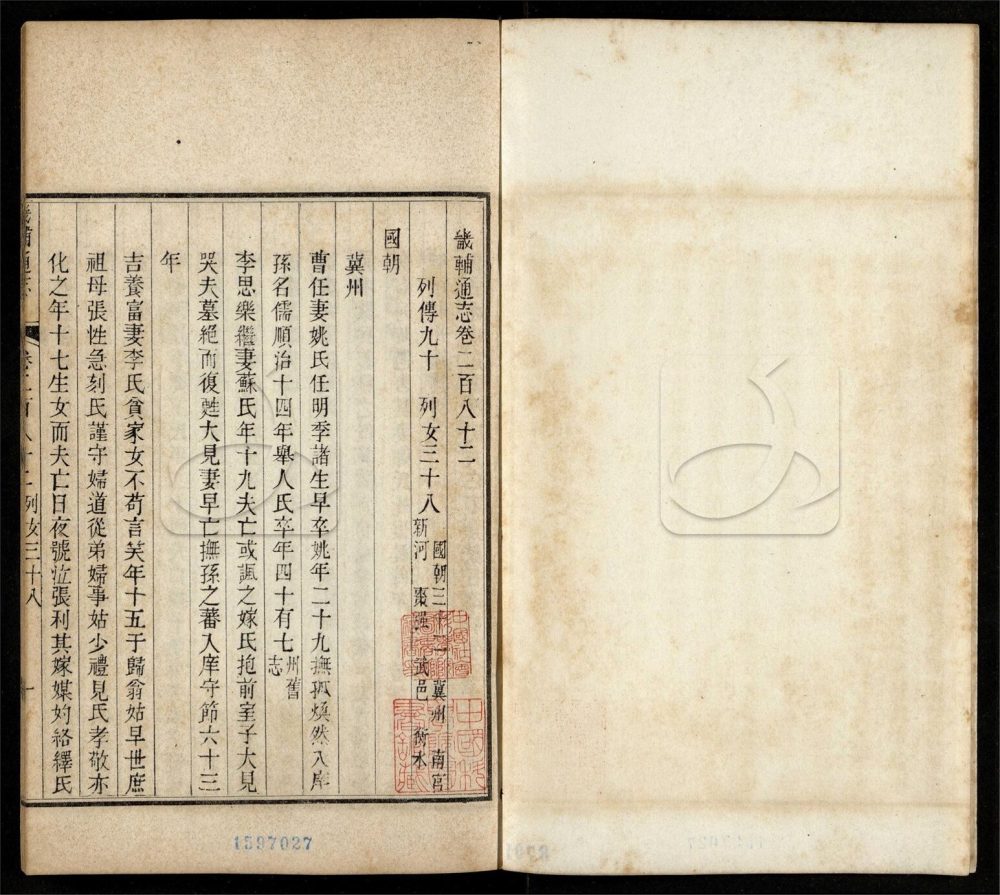 畿輔通志卷二百八十二
列傳九十　列女三十八
國朝三十二　冀州　南宮
新河　棗強　武邑　衡水
國朝
冀州
曹任妻姚氏任明季諸生早卒姚年二十九撫孤煥然入庠
孫名儒順治十四年舉人氏卒年四十有七州舊志
李思樂繼妻蘇氏年十九夫亡或諷之嫁氏抱前室子大見
哭夫墓絕而復甦大見妻早亡撫孫之蕃入庠守節六十三
年
吉養富妻李氏貧家女不苟言笑年十五于歸翁姑早世庶
祖母張性急刻氏謹守婦道從弟婦事姑少禮見氏孝敬亦
化之年十七生女而夫亡日夜號泣張利其嫁媒妁絡繹氏
畿輔通志
卷二百八十二 列女三十八
一
1597027